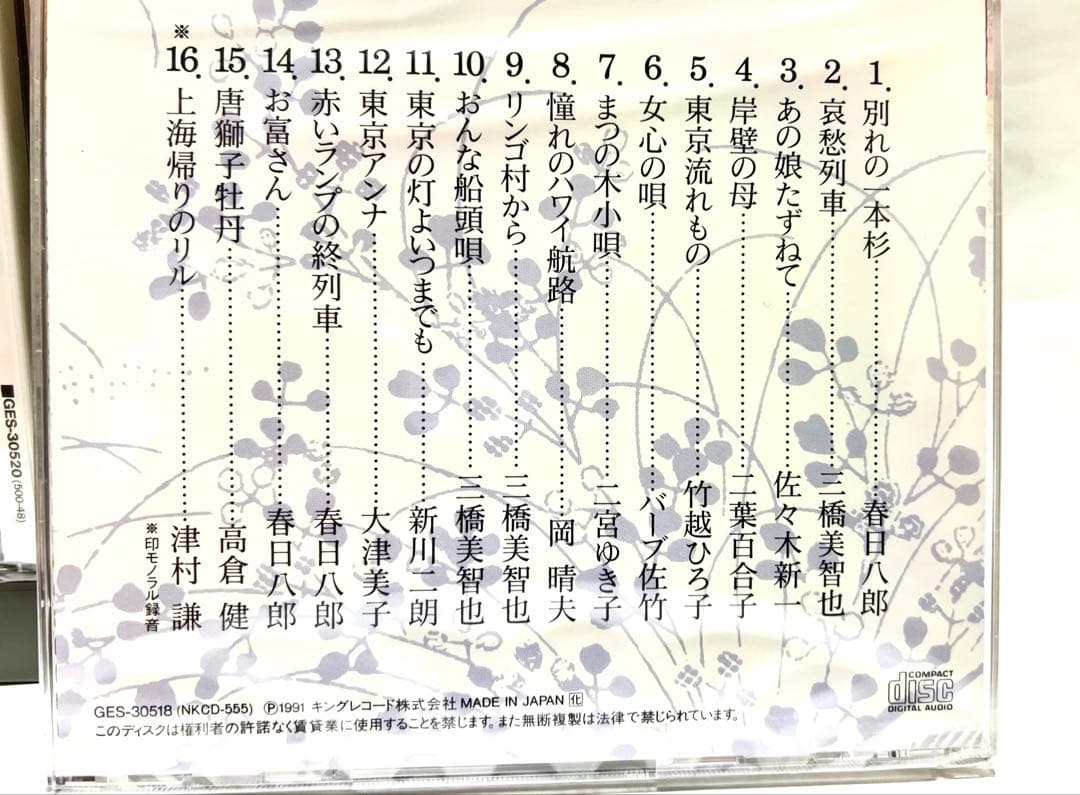 1. 別れの一本杉……春日八郎
2. 哀愁列車……三橋美智也
3. あの娘たずねて……佐々木新一
4. 岸壁の母……二葉百合子
5. 東京流れもの……竹越ひろ子
6. 女心の唄……バーブ佐竹
7. まつの木小唄……二宮ゆき子
8. 憧れのハワイ航路……岡 晴夫
9. リンゴ村から……三橋美智也
10. おんな船頭唄……三橋美智也
11. 東京の灯よいつまでも……新川二朗
12. 東京アンナ……大津美子
13. 赤いランプの終列車……春日八郎
14. お富さん……春日八郎
15. 唐獅子牡丹……高倉 健
※16. 上海帰りのリル……津村 謙
※印モノラル録音
GES-30518 (NKCD-555) Ⓟ1991 キングレコード株式会社 MADE IN JAPAN 化
このディスクは権利者の許諾なく賃貸業に使用することを禁じます。また無断複製は法律で禁じられています。
COMPACT
disc
DIGITAL AUDIO
■GES-30520 (500-48)